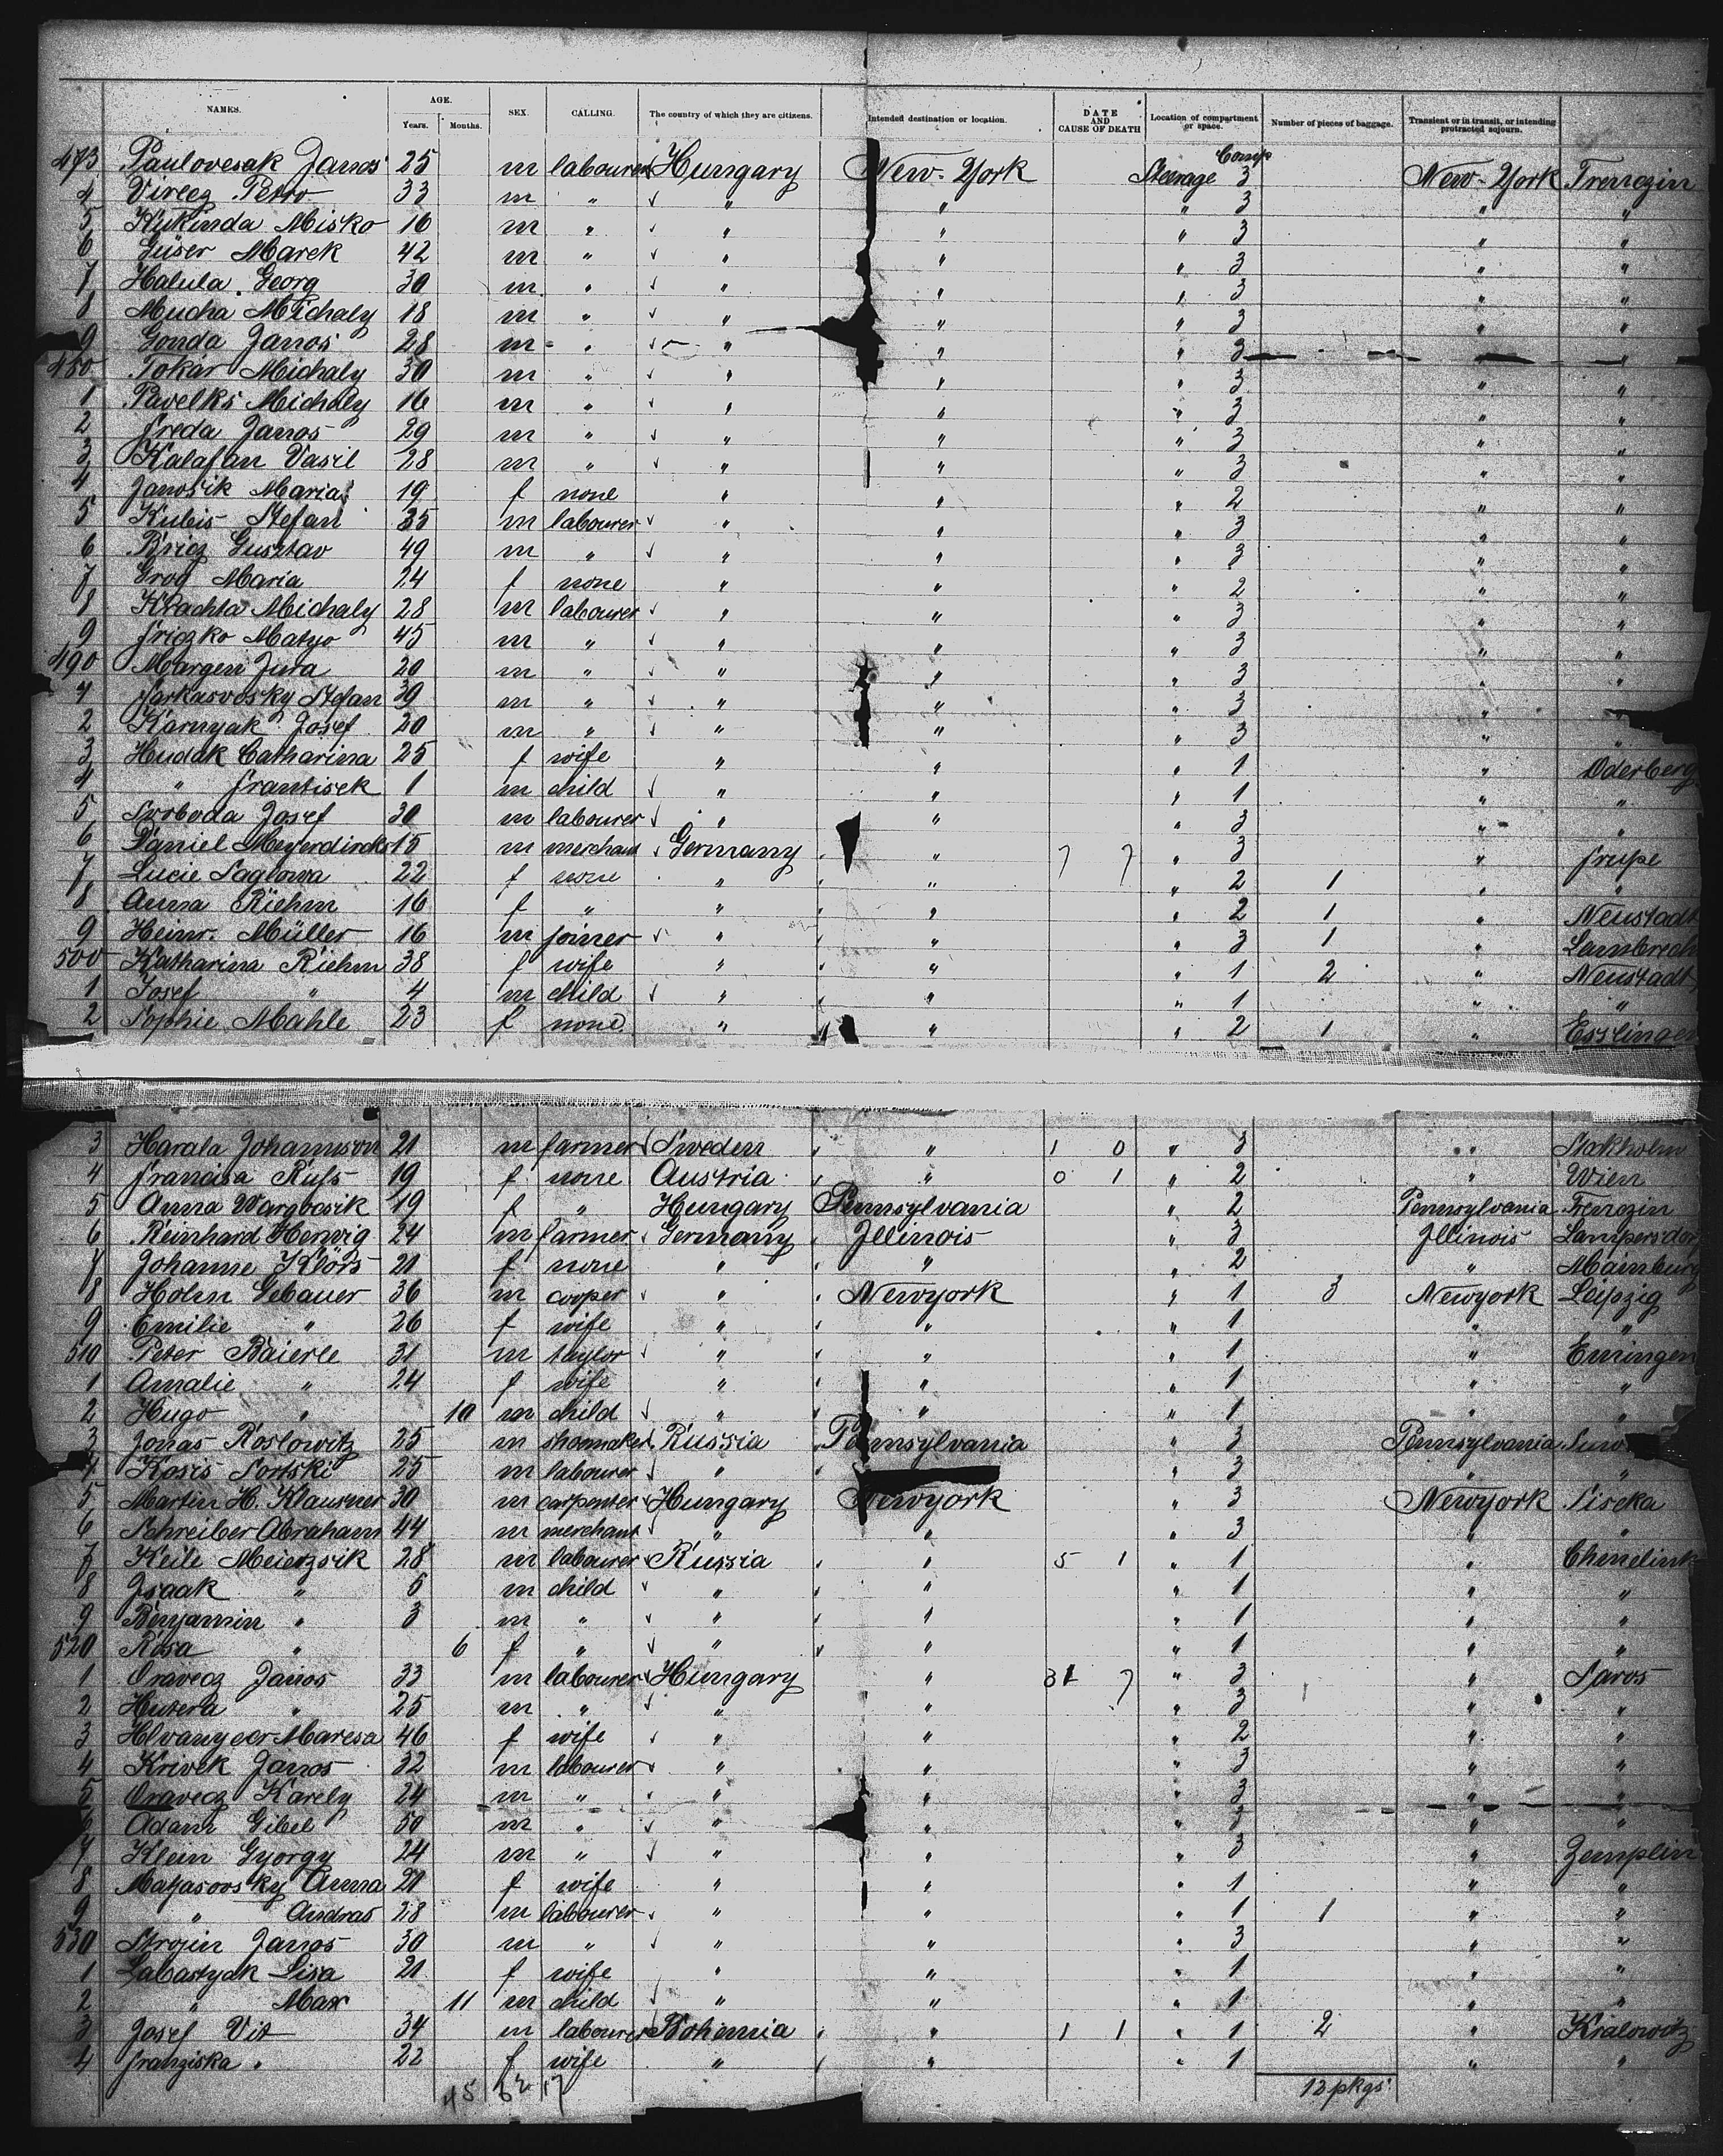 NAMES. AGE. SEX. CALLING. The country of which they are citizens. Intended destination or location. DATE AND CAUSE OF DEATH Location of compartment or space. Number of pieces of baggage. Transient or in transit, or intending protracted sojourn.
Years. Months.
473 Paulovesak Janos 25 m labourer Hungary New-York Steerage Comp 3 New-York Trenczin
4 Vircez Petro 33 m " " " " 3 " "
5 Kukinda Misko 16 m " " " " 3 " "
6 Güser Marek 42 m " " " " 3 " "
7 Halula Georg 30 m " " " " 3 " "
8 Mucha Michaly 18 m " " " " 3 " "
9 Gonda Janos 28 m " " " " 3 "
480 Tokár Michaly 30 m " " " " 3 " "
1 Pavelks Michaly 16 m " " " " 3 " "
2 Freda Janos 29 m " " " " 3 " "
3 Kalafan Vasil 28 m " " " " 3 " "
4 Janosik Maria 19 f none " " " 2 " "
5 Kubis Stefan 35 m labourer " " " 3 " "
6 Bricz Gusztav 49 m " " " " 3 " "
7 Grog Maria 24 f none " " " 2 " "
8 Krachta Michaly 28 m labourer " " " 3 " "
9 Friczko Matyo 45 m " " " " 3 " "
490 Margen Jura 20 m " " " " 3 " "
1 Farkasvosky Stefan 39 m " " " " 3 "
2 Karnyak Josef 20 m " " " " 3 " "
3 Hudak Catharina 25 f wife " " " 1 " Oderberg
4 " Frantisek 1 m child " " " 1 " "
5 Svoboda Josef 30 m labourer " " " 3 " "
6 Daniel Meyerdircks 15 m merchant Germany " 7 7 " 3 " Frupe
7 Lucie Saglowa 22 f none " " " 2 1 " "
8 Anna Riehm 16 f " " " " 2 1 " Neustadt
9 Heinr. Müller 16 m joiner " " " 3 1 " Lambrech
500 Katharina Riehm 38 f wife " " " 1 2 " Neustadt
1 Josef " 4 m child " " " 1 " "
2 Sophie Mahle 23 f none " " " 2 1 " Esslingen
3 Harala Johannson 21 m farmer Sweden " 1 0 " 3 " Stokholm
4 Francisa Rufs 19 f none Austria " 0 1 " 2 " Wien
5 Anna Wargocsik 19 f " Hungary Pennsylvania " 2 Pennsylvania Trenczin
6 Reinhard Herwig 24 m farmer Germany Illinois " 3 Illinois Lampersdor
7 Johanne Klörs 21 f none " " " 2 " Mainburg
8 Holm Gebauer 36 m cooper " Newyork " 1 3 Newyork Leipzig
9 Emilie " 26 f wife " " " 1 " "
510 Peter Baierle 31 m taylor " " " 1 " Emingen
1 Amalie " 24 f wife " " " 1 " "
2 Hugo " 10 m child " " " 1 " "
3 Jonas Roslowitz 25 m shoemaker Russia Pennsylvania " 3 Pennsylvania Suw
4 Kosis Sortski 25 m labourer " " 3 " "
5 Martin H. Klausner 30 m carpenter Hungary Newyork " 3 Newyork Siseka
6 Schreiber Abraham 44 m merchant " " " 3 " "
7 Keile Meierzsik 28 m labourer Russia " 5 1 " 1 " Chmelink
8 Isaak " 5 m child " " " 1 " "
9 Benjamin " 3 m " " " " 1 " "
520 Rosa " 6 f " " " " 1 " "
1 Oravecz Janos 33 m labourer Hungary " 31 7 " 3 " Saros
2 Hutera " 25 m " " " " 3 " "
3 Hlvanyeer Maresa 46 f wife " " " 2 " "
4 Krivek Janos 32 m labourer " " " 3 " "
5 Oravecz Karely 24 m " " " " 3 " "
6 Adam Gibel 50 m " " " " 3 " "
7 Klein Gyorgy 24 m " " " " 3 " Zemplin
8 Matjasovsky Anna 21 f wife " " " 1 " "
9 " Andras 28 m labourer " " " 1 1 " "
530 Strojin Janos 30 m " " " " 3 " "
1 Labastyak Lisa 21 f wife " " " 1 " "
2 " Max 11 m child " " " 1 " "
3 Josef Vit 34 m labourer Bohemia " 1 1 " 1 2 " Kralowitz
4 Franziska " 22 f wife " " " 1 " "
45 62 17 12 pkgs.